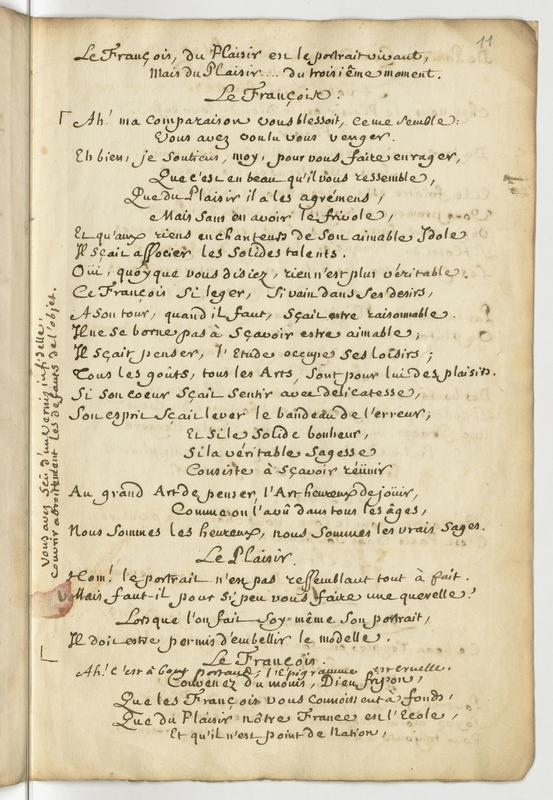 11
Le François, du Plaisir est le portrait vivant,
Mais du Plaisir.... du troisiême moment.
Le François.
Ah! ma comparaison vous blessoit, ce me semble:
Vous avez voulu vous venger.
Eh bien, je soutiens, moy, pour vous faire enrager,
Que c'est en beau qu'il vous ressemble,
Que du Plaisir il a les agrémens,
Mais sans en avoir le frivole,
Et qu'aux riens enchanteurs de son aimable Idole
Il sçait associer les solides talents.
Oüi, quoyque vous disiez, rien n'est plus véritable.
Ce François si leger, si vain dans ses desirs,
A son tour, quand il faut, sçait estre raisonnable.
Il ne se borne pas à sçavoir estre aimable;
Il sçait penser, l'Etude occupe ses loisirs;
Tous les goûts, tous les Arts, sont pour lui des plaisirs.
Si son coeur sçait sentir avec délicatesse,
Son esprit sçait lever le bandeau de l'erreur;
Et si le solide bonheur,
Si la véritable sagesse
Consiste à sçavoir réünir
Au grand Art de penser, l'Art heureux de joüir,
Comme on l'a vû dans tous les âges,
Nous sommes les heureux, nous sommes les vrais sages.
Le Plaisir.
Hom! le portrait n'est pas ressemblant tout à fait.
Mais faut-il pour si peu vous faire une querelle?
Lorsque l'on fait soy-même son portrait,
Il doit estre permis d'embellir le modelle.
Vous avez sçû d'un vernis infidelle,
Couvrir adroitement les défauts de l'objet.
Le François.
Ah! c'est à bout portant; l'Epigramme est cruelle.
Convenez du moins, Dieu fripon,
Que les François vous connoissent à fonds,
Que du Plaisir nôtre France est l'Ecole,
Et qu'il n'est point de Nation,